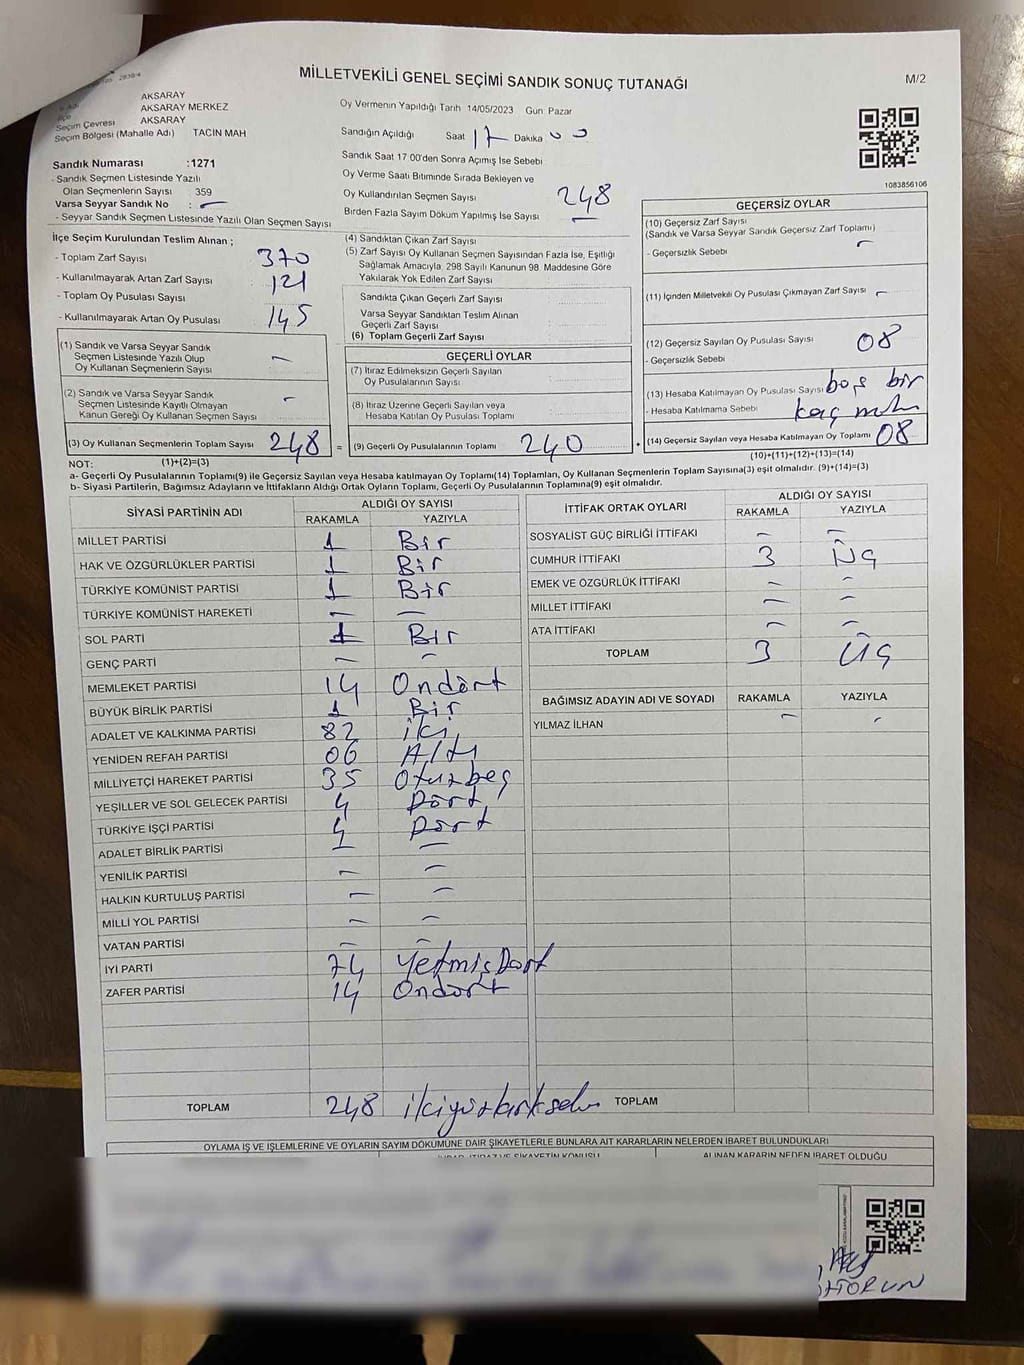 MİLLETVEKİLİ GENEL SEÇİMİ SANDIK SONUÇ TUTANAĞI
M/2
AKSARAY
AKSARAY MERKEZ
Seçim Çevresi AKSARAY
Seçim Bölgesi (Mahalle Adı) TACİN MAH
Oy Vermenin Yapıldığı Tarih 14/05/2023 Gün Pazar
Sandığın Açıldığı Saat 17 Dakika 00
Sandık Numarası :1271
- Sandık Seçmen Listesinde Yazılı
Olan Seçmenlerin Sayısı 359
Varsa Seyyar Sandık No : –
- Seyyar Sandık Seçmen Listesinde Yazılı Olan Seçmen Sayısı
Sandık Saat 17 00'den Sonra Açımış İse Sebebi
Oy Verme Saati Bitiminde Sırada Bekleyen ve
Oy Kullandırılan Seçmen Sayısı 248
Birden Fazla Sayım Döküm Yapılmış İse Sayısı –
1083856106
İlçe Seçim Kurulundan Teslim Alınan ;
- Toplam Zarf Sayısı 370
- Kullanılmayarak Artan Zarf Sayısı 121
- Toplam Oy Pusulası Sayısı
- Kullanılmayarak Artan Oy Pusulası 145
(1) Sandık ve Varsa Seyyar Sandık
Seçmen Listesinde Yazılı Olup
Oy Kullanan Seçmenlerin Sayısı –
(2) Sandık ve Varsa Seyyar Sandık
Seçmen Listesinde Kayıtlı Olmayan
Kanun Gereği Oy Kullanan Seçmen Sayısı –
(3) Oy Kullanan Seçmenlerin Toplam Sayısı 248 =
(1)+(2)=(3)
(4) Sandıktan Çıkan Zarf Sayısı
(5) Zarf Sayısı Oy Kullanan Seçmen Sayısından Fazla İse, Eşitliği
Sağlamak Amacıyla 298 Sayılı Kanunun 98 Maddesine Göre
Yakılarak Yok Edilen Zarf Sayısı
Sandıkta Çıkan Geçerli Zarf Sayısı
Varsa Seyyar Sandıktan Teslim Alınan
Geçerli Zarf Sayısı
(6) Toplam Geçerli Zarf Sayısı
GEÇERLİ OYLAR
(7) İtiraz Edilmeksizin Geçerli Sayılan
Oy Pusulalarının Sayısı
(8) İtiraz Üzerine Geçerli Sayılan veya
Hesaba Katılan Oy Pusulası Toplamı
(9) Geçerli Oy Pusulalarının Toplamı 240 +
GEÇERSİZ OYLAR
(10) Geçersiz Zarf Sayısı
(Sandık ve Varsa Seyyar Sandık Geçersiz Zarf Toplamı)
- Geçersizlik Sebebi –
(11) İçinden Milletvekili Oy Pusulası Çıkmayan Zarf Sayısı –
(12) Geçersiz Sayılan Oy Pusulası Sayısı 08
- Geçersizlik Sebebi
(13) Hesaba Katılmayan Oy Pusulası Sayısı boş bir
- Hesaba Katılmama Sebebi kaç
(14) Geçersiz Sayılan veya Hesaba Katılmayan Oy Toplamı 08
(10)+(11)+(12)+(13)=(14)
NOT:
a- Geçerli Oy Pusulalarının Toplamı(9) ile Geçersiz Sayılan veya Hesaba katılmayan Oy Toplamı(14) Toplamları, Oy Kullanan Seçmenlerin Toplam Sayısına(3) eşit olmalıdır. (9)+(14)=(3)
b- Siyasi Partilerin, Bağımsız Adayların ve İttifakların Aldığı Ortak Oyların Toplam, Geçerli Oy Pusulalarının Toplamına(9) eşit olmalıdır.
SİYASİ PARTİNİN ADI ALDIĞI OY SAYISI
RAKAMLA YAZIYLA
MİLLET PARTİSİ 1 Bir
HAK VE ÖZGÜRLÜKLER PARTİSİ 1 Bir
TÜRKİYE KOMÜNİST PARTİSİ 1 Bir
TÜRKİYE KOMÜNİST HAREKETİ – –
SOL PARTİ 1 Bir
GENÇ PARTİ – –
MEMLEKET PARTİSİ 14 Ondört
BÜYÜK BİRLİK PARTİSİ 1 Bir
ADALET VE KALKINMA PARTİSİ 82 iki
YENİDEN REFAH PARTİSİ 06 Altı
MİLLİYETÇİ HAREKET PARTİSİ 35 Otuzbeş
YEŞİLLER VE SOL GELECEK PARTİSİ 4 Dört
TÜRKİYE İŞÇİ PARTİSİ 4 Dört
ADALET BİRLİK PARTİSİ – –
YENİLİK PARTİSİ – –
HALKIN KURTULUŞ PARTİSİ – –
MİLLİ YOL PARTİSİ – –
VATAN PARTİSİ – –
İYİ PARTİ 74 YetmişDört
ZAFER PARTİSİ 14 Ondört
TOPLAM 248
İTTİFAK ORTAK OYLARI ALDIĞI OY SAYISI
RAKAMLA YAZIYLA
SOSYALİST GÜÇ BİRLİĞİ İTTİFAKI – –
CUMHUR İTTİFAKI 3 Üç
EMEK VE ÖZGÜRLÜK İTTİFAKI – –
MİLLET İTTİFAKI – –
ATA İTTİFAKI – –
TOPLAM 3 Üç
BAĞIMSIZ ADAYIN ADI VE SOYADI RAKAMLA YAZIYLA
YILMAZ İLHAN – –
TOPLAM
OYLAMA İŞ VE İŞLEMLERİNE VE OYLARIN SAYIM DÖKÜMÜNE DAİR ŞİKAYETLERLE BUNLARA AİT KARARLARIN NELERDEN İBARET BULUNDUKLARI
ALINAN KARARIN NEDEN İBARET OLDUĞU